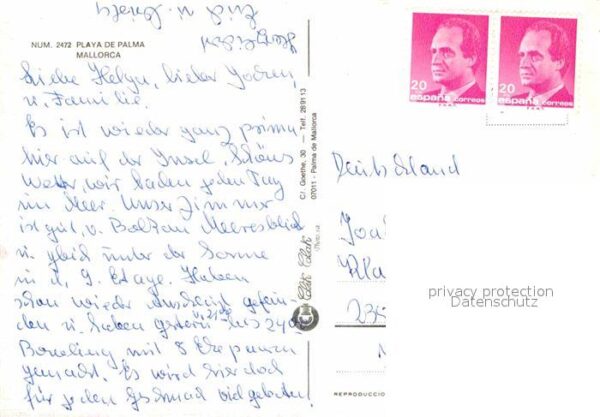 NUM. 2472 PLAYA DE PALMA
MALLORCA
Liebe Helga, lieber Jochen,
u. Familie.
Es ist wieder ganz prima
hier auf der Insel. Schönes
Wetter, wir baden jeden Tag
im Meer. Unser Zimmer
ist gut, u. Balkon Meeresblick
u. gleich unter der Sonne
in d. 9. Etage. Haben
schon wieder Anschluß gefun-
den u. haben gestern
Bowling mit 8 Ehepaaren
gemacht. Es wird hier doch
für jeden Geschmack viel geboten.
Herzlichst
C/. Goethe, 30 — Telf. 289113
07011 - Palma de Mallorca
Clak Clak
20
españa correos
20
españa correos
Deutschland
Joa
Kla
235
privacy protection
Datenschutz
REPRODUCCIO